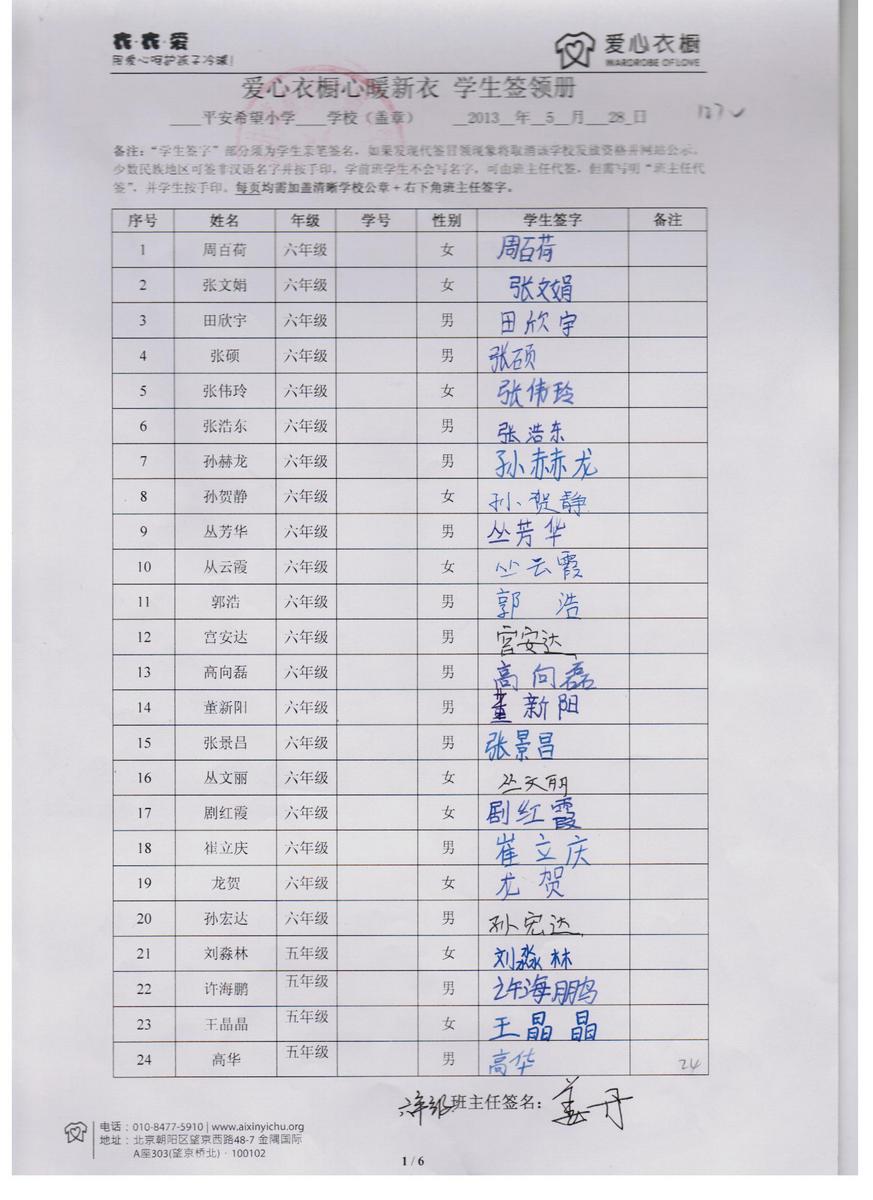 衣·衣·爱
用爱心呵护孩子冷暖!
爱心衣橱
WARDROBE OF LOVE
爱心衣橱心暖新衣 学生签领册
____平安希望小学____学校（盖章） __2013__年__5__月___28_日
127
备注:“学生签字”部分须为学生亲笔签名,如果发现代签冒领现象将取消该学校发放资格并网站公示。
少数民族地区可签非汉语名字并按手印。学前班学生不会写名字,可由班主任代签,但需写明“班主任代
签”,并学生按手印。每页均需加盖清晰学校公章+右下角班主任签字。
序号 姓名 年级 学号 性别 学生签字 备注
1 周百荷 六年级 女 周百荷
2 张文娟 六年级 女 张文娟
3 田欣宇 六年级 男 田欣宇
4 张硕 六年级 男 张硕
5 张伟玲 六年级 女 张伟玲
6 张浩东 六年级 男 张浩东
7 孙赫龙 六年级 男 孙赫龙
8 孙贺静 六年级 女 孙贺静
9 丛芳华 六年级 男 丛芳华
10 从云霞 六年级 女 丛云霞
11 郭浩 六年级 男 郭浩
12 宫安达 六年级 男 宫安达
13 高向磊 六年级 男 高向磊
14 董新阳 六年级 男 董新阳
15 张景昌 六年级 男 张景昌
16 丛文丽 六年级 女 丛文丽
17 剧红霞 六年级 女 剧红霞
18 崔立庆 六年级 男 崔立庆
19 龙贺 六年级 女 龙贺
20 孙宏达 六年级 男 孙宏达
21 刘淼林 五年级 女 刘淼林
22 许海鹏 五年级 男 许海鹏
23 王晶晶 五年级 女 王晶晶
24 高华 五年级 男 高华 24
班主任签名:
电话:010-8477-5910 | www.aixinyichu.org
地址:北京朝阳区望京西路48-7 金隅国际
A座303(望京桥北)·100102
1 / 6